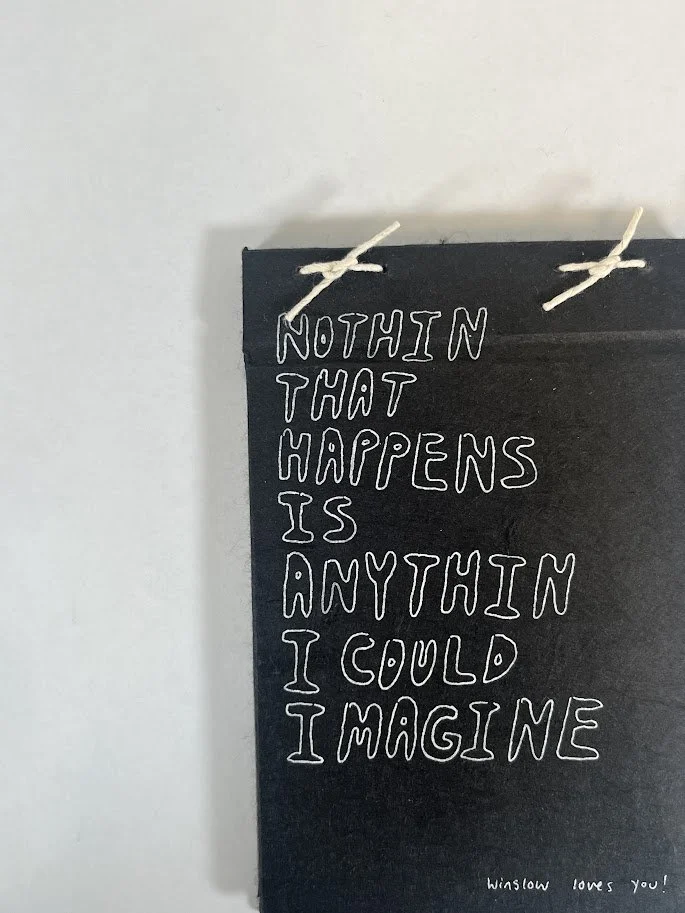 NOTHIN
THAT
HAPPENS
IS
ANYTHIN
I COULD
IMAGINE
Winslow loves you!